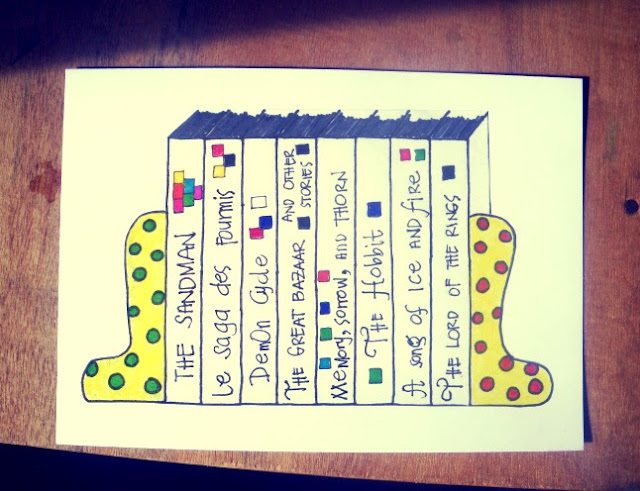 THE SANDMAN
Le saga des fourmis
Demon Cycle
THE GREAT BAZAAR AND OTHER
STORIES
Memory, sorrow, AND THORN
THE Hobbit
A song of Ice AND fire
THE LORD OF THE RINGS